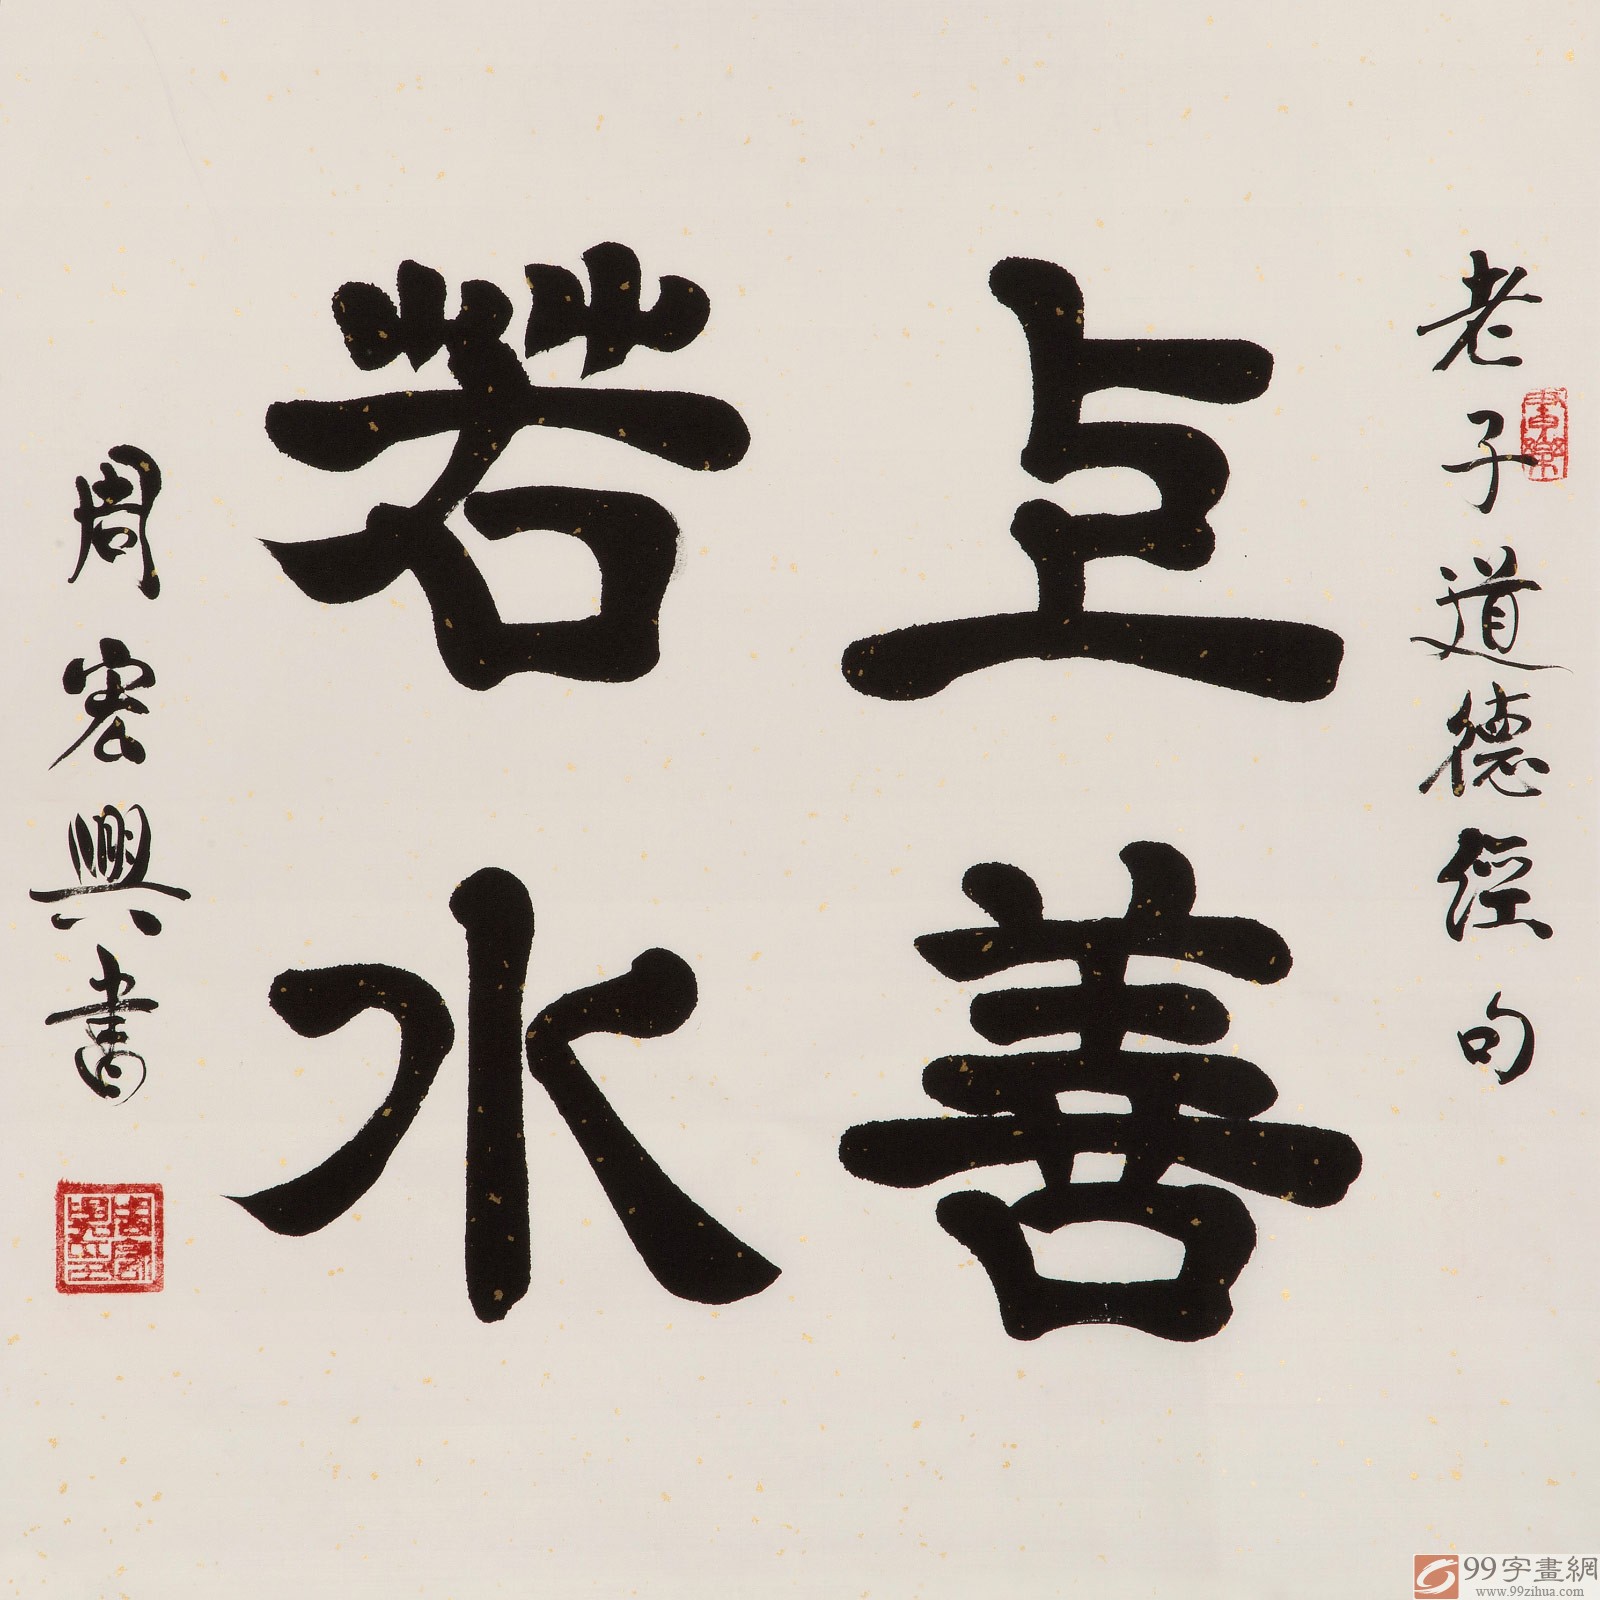 老子道德經句
上善
若水
周宏興書
99字畫網
www.99zihua.com